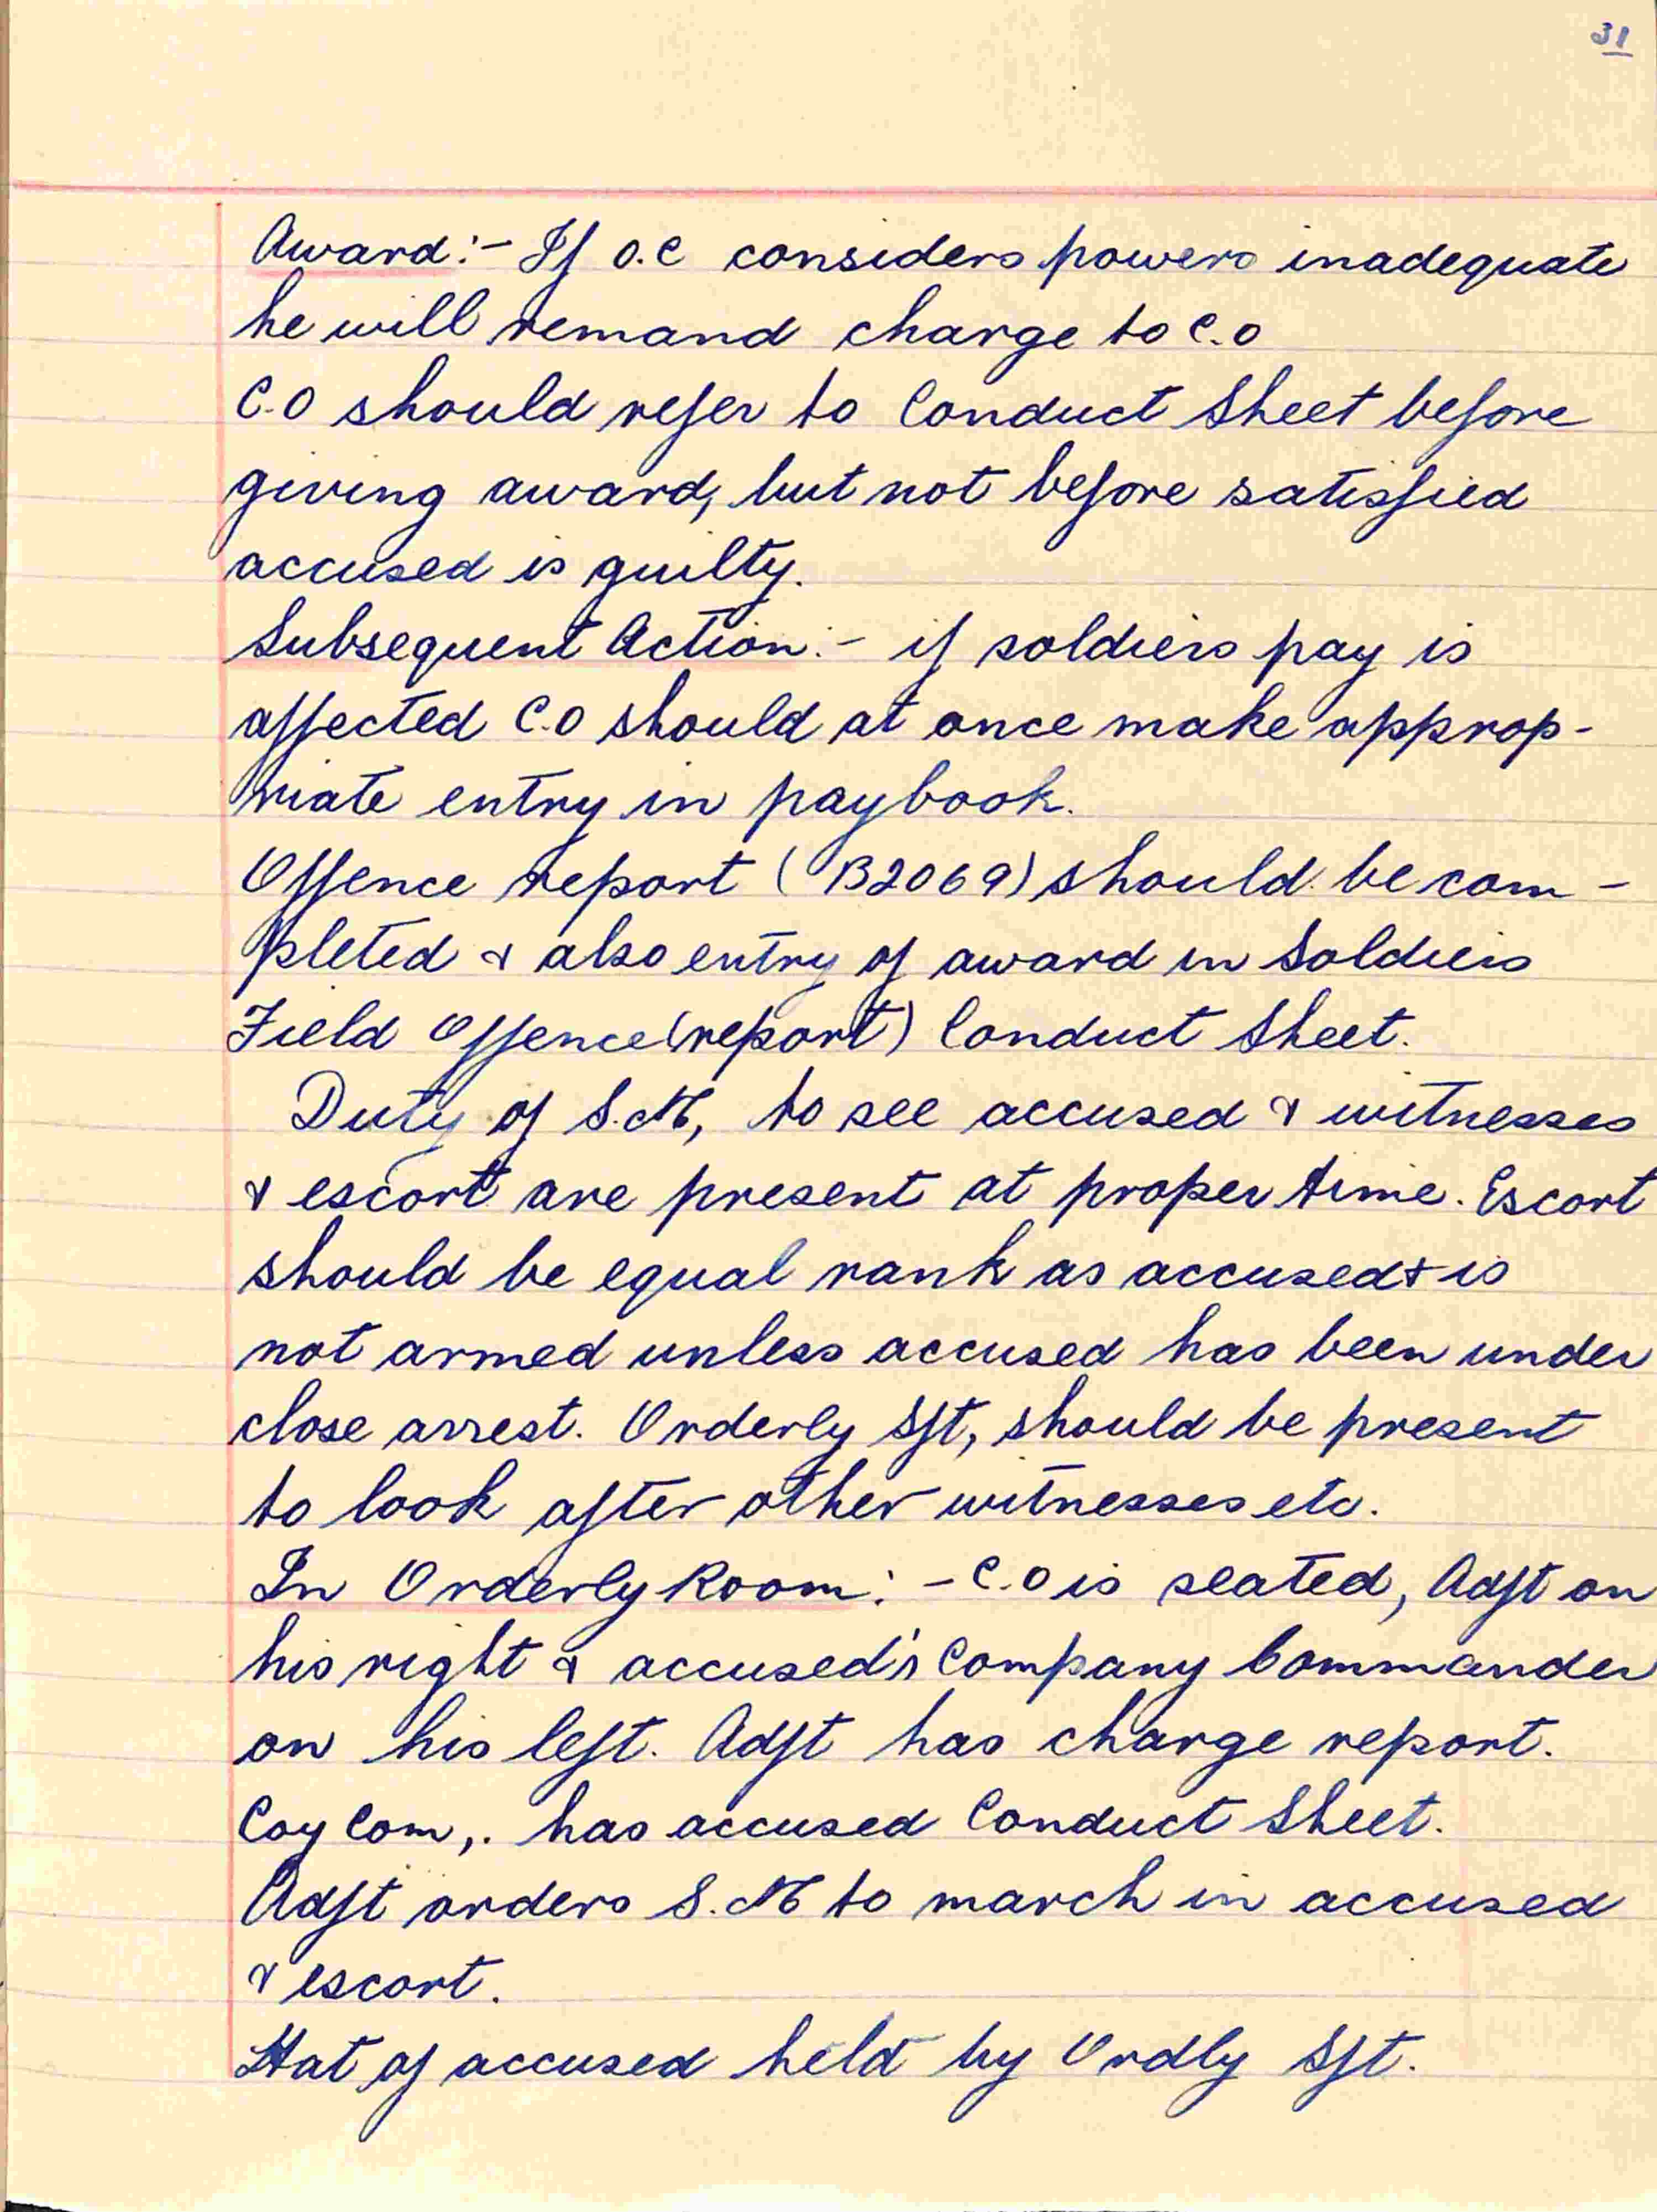 31
Award:- If O.C considers powers inadequate
he will remand charge to C.O
C.O should refer to Conduct Sheet before
giving award, but not before satisfied
accused is guilty.
Subsequent Action:- if soldiers pay is
affected C.O should at once make approp-
riate entry in paybook.
Offence report (B2069) should be com-
pleted & also entry of award in Soldiers
Field Offence (report) Conduct Sheet.
Duty of S.M, to see accused & witnesses
& escort are present at proper time. Escort
should be equal rank as accused & is
not armed unless accused has been under
close arrest. Orderly Sgt, should be present
to look after other witnesses etc.
In Orderly Room:- C.O is seated, Adjt on
his right & accused's Company Commander
on his left. Adjt has charge report.
Coy Com,. has accused Conduct Sheet.
Adjt orders S.M to march in accused
& escort.
Hat of accused held by Ordly Sgt.